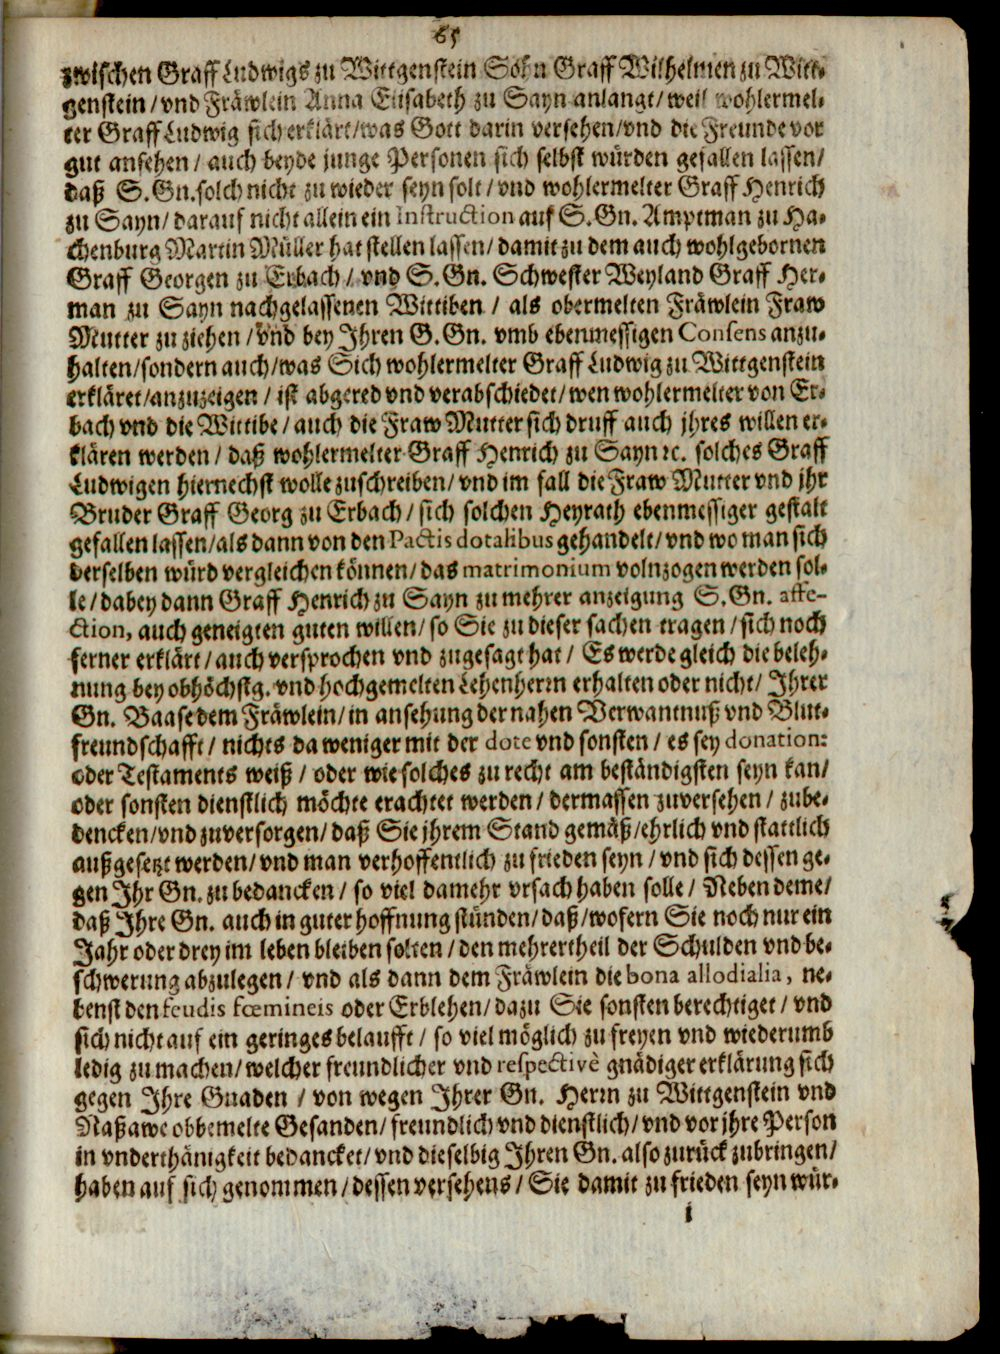 65
zwischen Graff Ludwigs zu Wittgenstein Sohn Graff Wilhelmen zu Witt-
genstein / vnd Fräwlein Anna Elisabeth zu Sayn anlangt / weil wohlermel-
ter Graff Ludwig sich erklärt / was Gott darin versehen / vnd die Freunde vor
gut ansehen / auch beyde junge Personen sich selbst würden gefallen lassen /
daß S. Gn. solch nicht zu wieder seyn solt / vnd wohlermelter Graff Henrich
zu Sayn / darauf nicht allein ein Instruction auf S. Gn. Amptman zu Ha-
chenburg Martin Müller hat stellen lassen / damit zu dem auch wohlgebornen
Graff Georgen zu Erbach / vnd S. Gn. Schwester Weyland Graff Her-
man zu Sayn nachgelassenen Wittiben / als obermelten Fräwlein Fraw
Mutter zu ziehen / vnd bey Jhren G. Gn. vmb ebenmessigen Consens anzu-
halten / sondern auch / was Sich wohlermelter Graff Ludwig zu Wittgenstein
erkläret / anzuzeigen / ist abgered vnd verabschiedet / wen wohlermelter von Er-
bach vnd die Wittibe / auch die Fraw Mutter sich druff auch jhres willen er-
klären werden / daß wohlermelter Graff Henrich zu Sayn ꝛc. solches Graff
Ludwigen hiernechst wolle zuschreiben / vnd im fall die Fraw Mutter vnd jhr
Bruder Graff Georg zu Erbach / sich solchen Heyrath ebenmessiger gestalt
gefallen lassen / als dann von den Pactis dotalibus gehandelt / vnd wo man sich
derselben würd vergleichen können / das matrimonium volnzogen werden sol-
le / dabey dann Graff Henrich zu Sayn zu mehrer anzeigung S. Gn. affe-
ction, auch geneigten guten willen / so Sie zu dieser sachen tragen / sich noch
ferner erklärt / auch versprochen vnd zugesagt hat / Es werde gleich die beleh-
nung bey obhöchstg. vnd hochgemelten Lehenherrn erhalten oder nicht / Jhrer
Gn. Baase dem Fräwlein / in ansehung der nahen Verwantnuß vnd Blut-
freundschafft / nichts da weniger mit der dote vnd sonsten / es sey donation:
oder Testaments weiß / oder wie solches zu recht am beständigsten seyn kan /
oder sonsten dienstlich möchte erachtet werden / dermassen zuversehen / zube-
dencken / vnd zuversorgen / daß Sie jhrem Stand gemäß / ehrlich vnd stattlich
außgesetzt werden / vnd man verhoffentlich zu frieden seyn / vnd sich dessen ge-
gen Jhr Gn. zu bedancken / so viel damehr vrsach haben solle / Neben deme /
daß Jhre Gn. auch in guter hoffnung stünden / daß / wofern Sie noch nur ein
Jahr oder drey im leben bleiben solten / den mehrertheil der Schulden vnd be-
schwerung abzulegen / vnd als dann dem Fräwlein die bona allodialia, ne-
benst den feudis fœmineis oder Erblehen / dazu Sie sonsten berechtiget / vnd
sich nicht auf ein geringes belaufft / so viel möglich zu freyen vnd wiederumb
ledig zu machen / welcher freundlicher vnd respectivè gnädiger erklärung sich
gegen Jhre Gnaden / von wegen Jhrer Gn. Herrn zu Wittgenstein vnd
Naßawe obbemelte Gesanden / freundlich vnd dienstlich / vnd vor jhre Person
in vnderthänigkeit bedancket / vnd dieselbig Jhren Gn. also zurück zubringen /
haben auf sich genommen / dessen versehens / Sie damit zu frieden seyn wür-
i